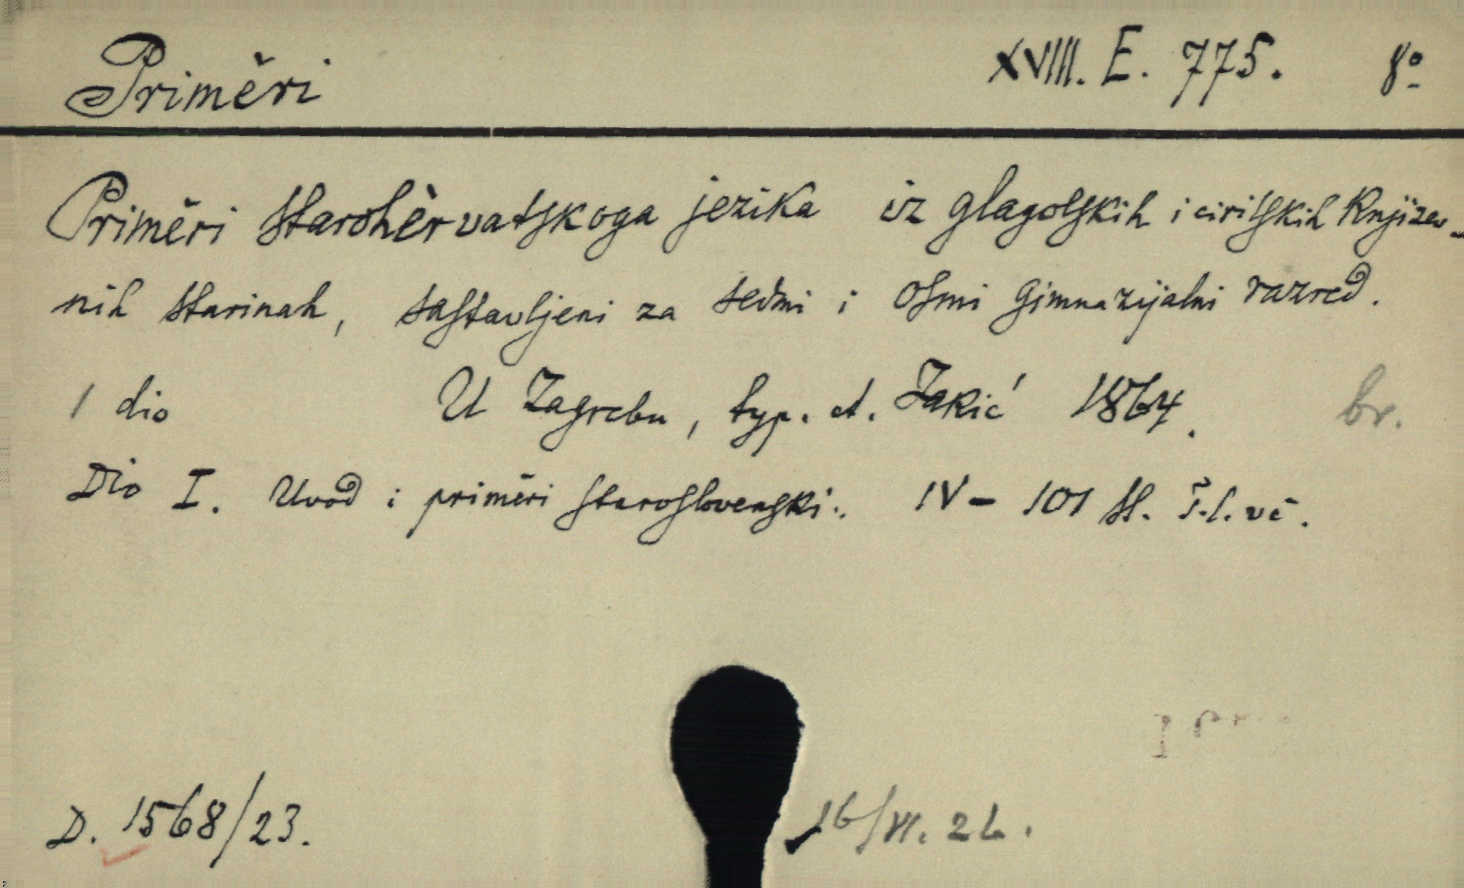 Priměri XVIII. E. 775. 8º
Priměri starohèrvatskoga jezika iz glagolskih i cirilskih Književ-
nih starinah, sastavljeni za sedmi i osmi gimnazijalni razred.
1 dio U Zagrebu, typ. A. Jakić 1864. br.
Dio I. Uvod i priměri staroslovenski. IV - 101 st. vč.
D. 1568/23.
16/VI. 26.